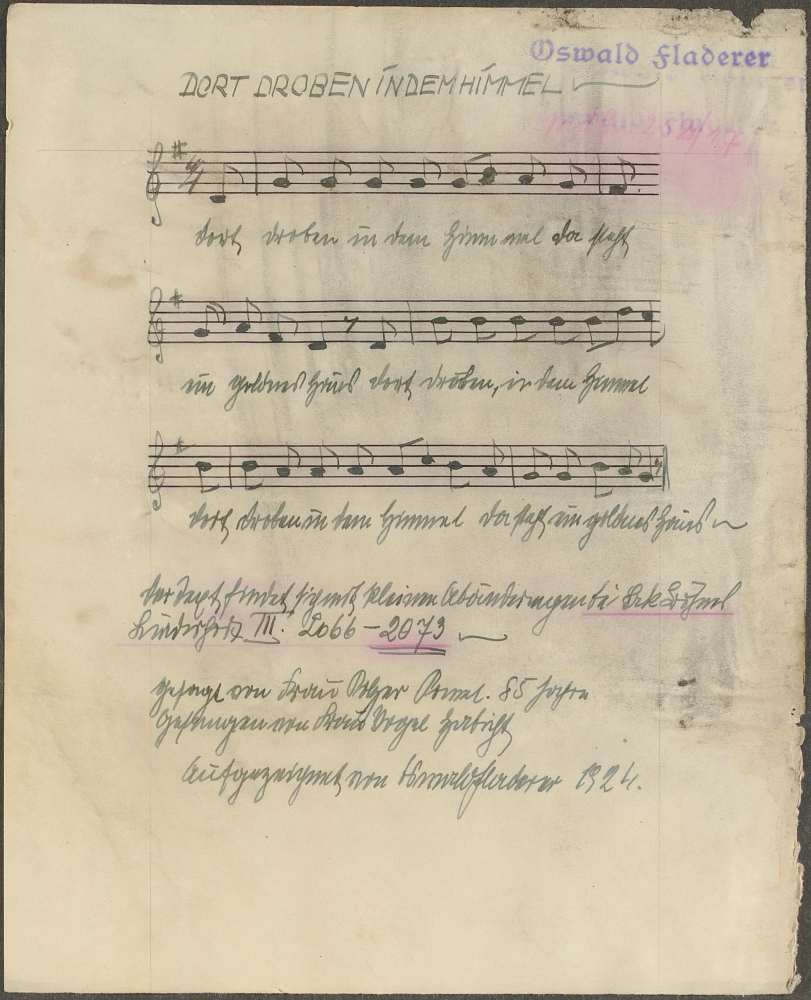 Oswald Fladerer
DORT DROBEN IN DEM HIMMEL
dort droben in dem Himmel da steht
ein goldnes Haus dort droben, in dem Himmel
dort droben in dem Himmel da steht ein goldnes Haus
der Text findet sich mit kleinen Abänderungen bei Erk Böhme
Liederhort III. 2066 – 2073
gesagt von Frau 85 Jahre
gesungen von Frau Vogel Habicht
Aufgezeichnet von Oswald Fladerer 1924.